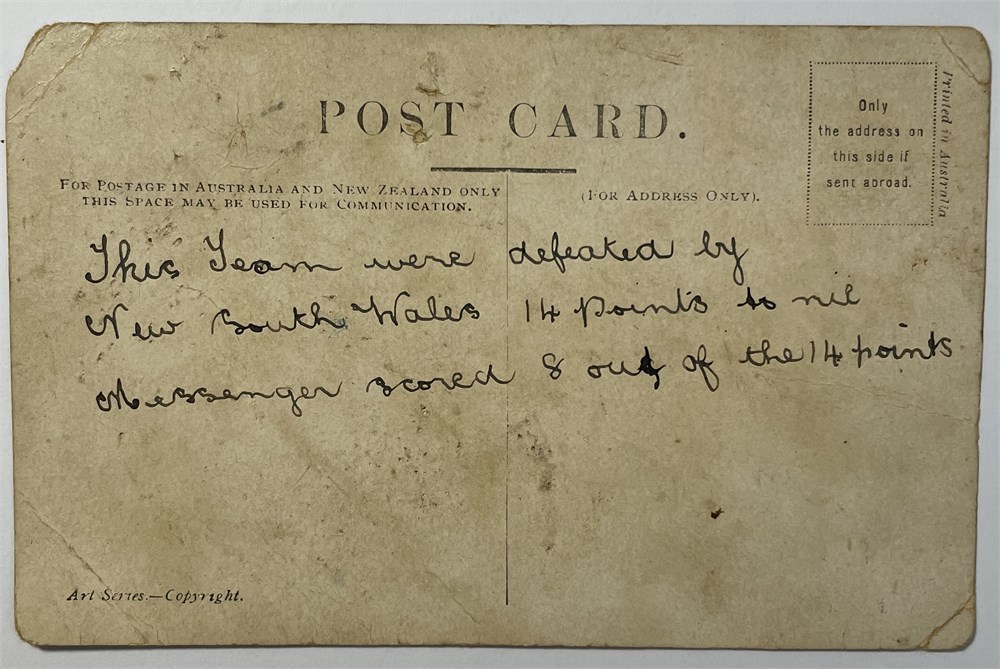 POST CARD.
FOR POSTAGE IN AUSTRALIA AND NEW ZEALAND ONLY
THIS SPACE MAY BE USED FOR COMMUNICATION.
(FOR ADDRESS ONLY).
Only
the address on
this side if
sent abroad.
Printed in Australia
This Team were defeated by
New South Wales 14 Points to nil
Messenger scored 8 out of the 14 points
Art Series.—Copyright.